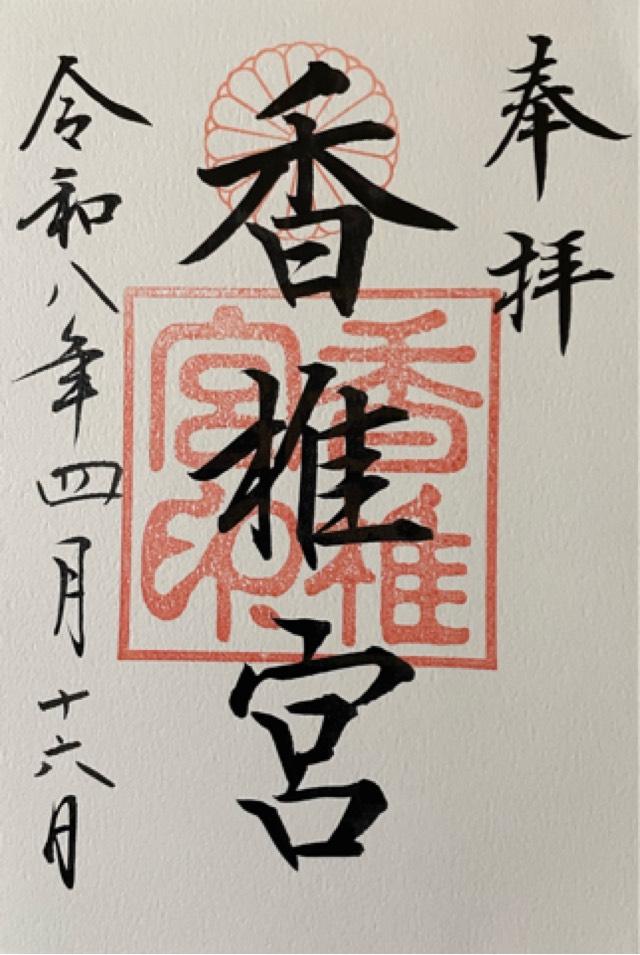 奉拝
香椎宮
香椎宮印
令和八年四月十六日